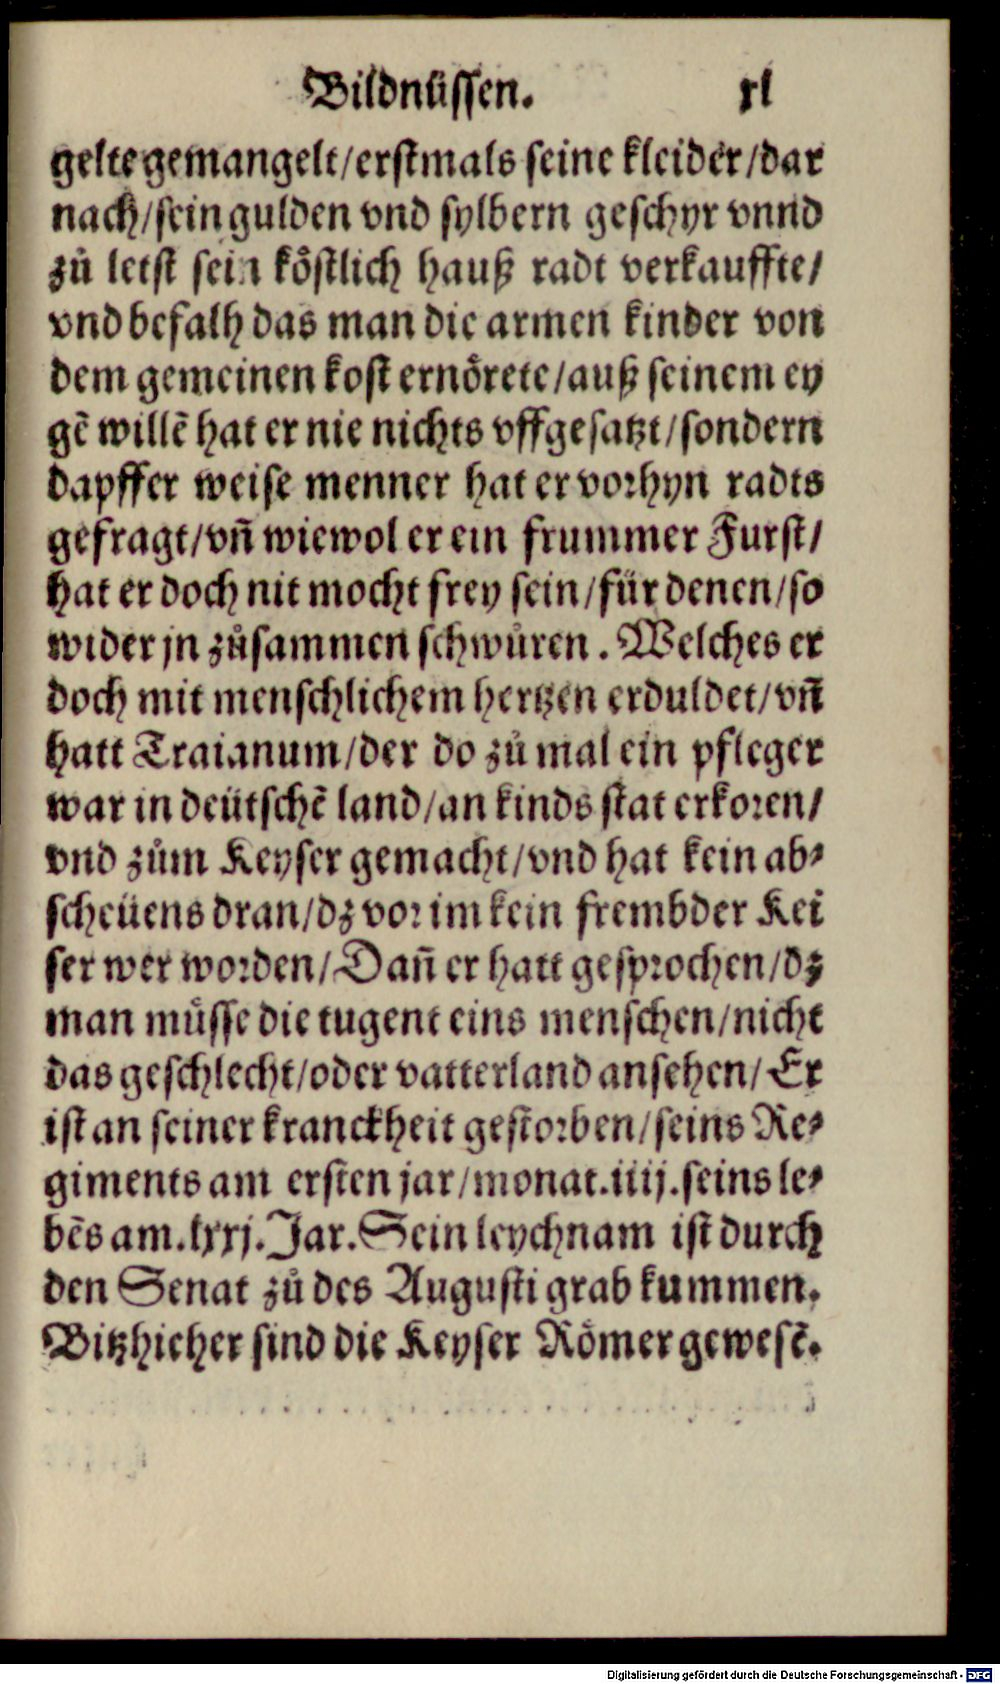 Bildnüssen. xl
gelte gemangelt/erstmals seine kleider/dar
nach/sein gulden vnd sylbern geschyr vnnd
zů letst sein kőstlich hauß radt verkauffte/
vnd befalh das man die armen kinder von
dem gemeinen kost ernőrete/auß seinem ey
gē willē hat er nie nichts vffgesatzt/sondern
dapffer weise menner hat er vorhyn radts
gefragt/vn̄ wiewol er ein frummer Furst/
hat er doch nit mocht frey sein/für denen/so
wider jn zůsammen schwůren. Welches er
doch mit menschlichem hertzen erduldet/vn̄
hatt Traianum/der do zů mal ein pfleger
war in deütschē land/an kinds stat erkoren/
vnd zům Keyser gemacht/vnd hat kein ab-
scheüens dran/dz vor im kein frembder Kei
ser wer worden/Dan̄ er hatt gesprochen/dz
man müsse die tugent eins menschen/nicht
das geschlecht/oder vatterland ansehen/Er
ist an seiner kranckheit gestorben/seins Re-
giments am ersten jar/monat.iiij.seins le-
bēs am.lxxj.Jar.Sein leychnam ist durch
den Senat zů des Augusti grab kummen.
Bitzhieher sind die Keyser Rőmer gewesē.
Digitalisierung gefördert durch die Deutsche Forschungsgemeinschaft - DFG